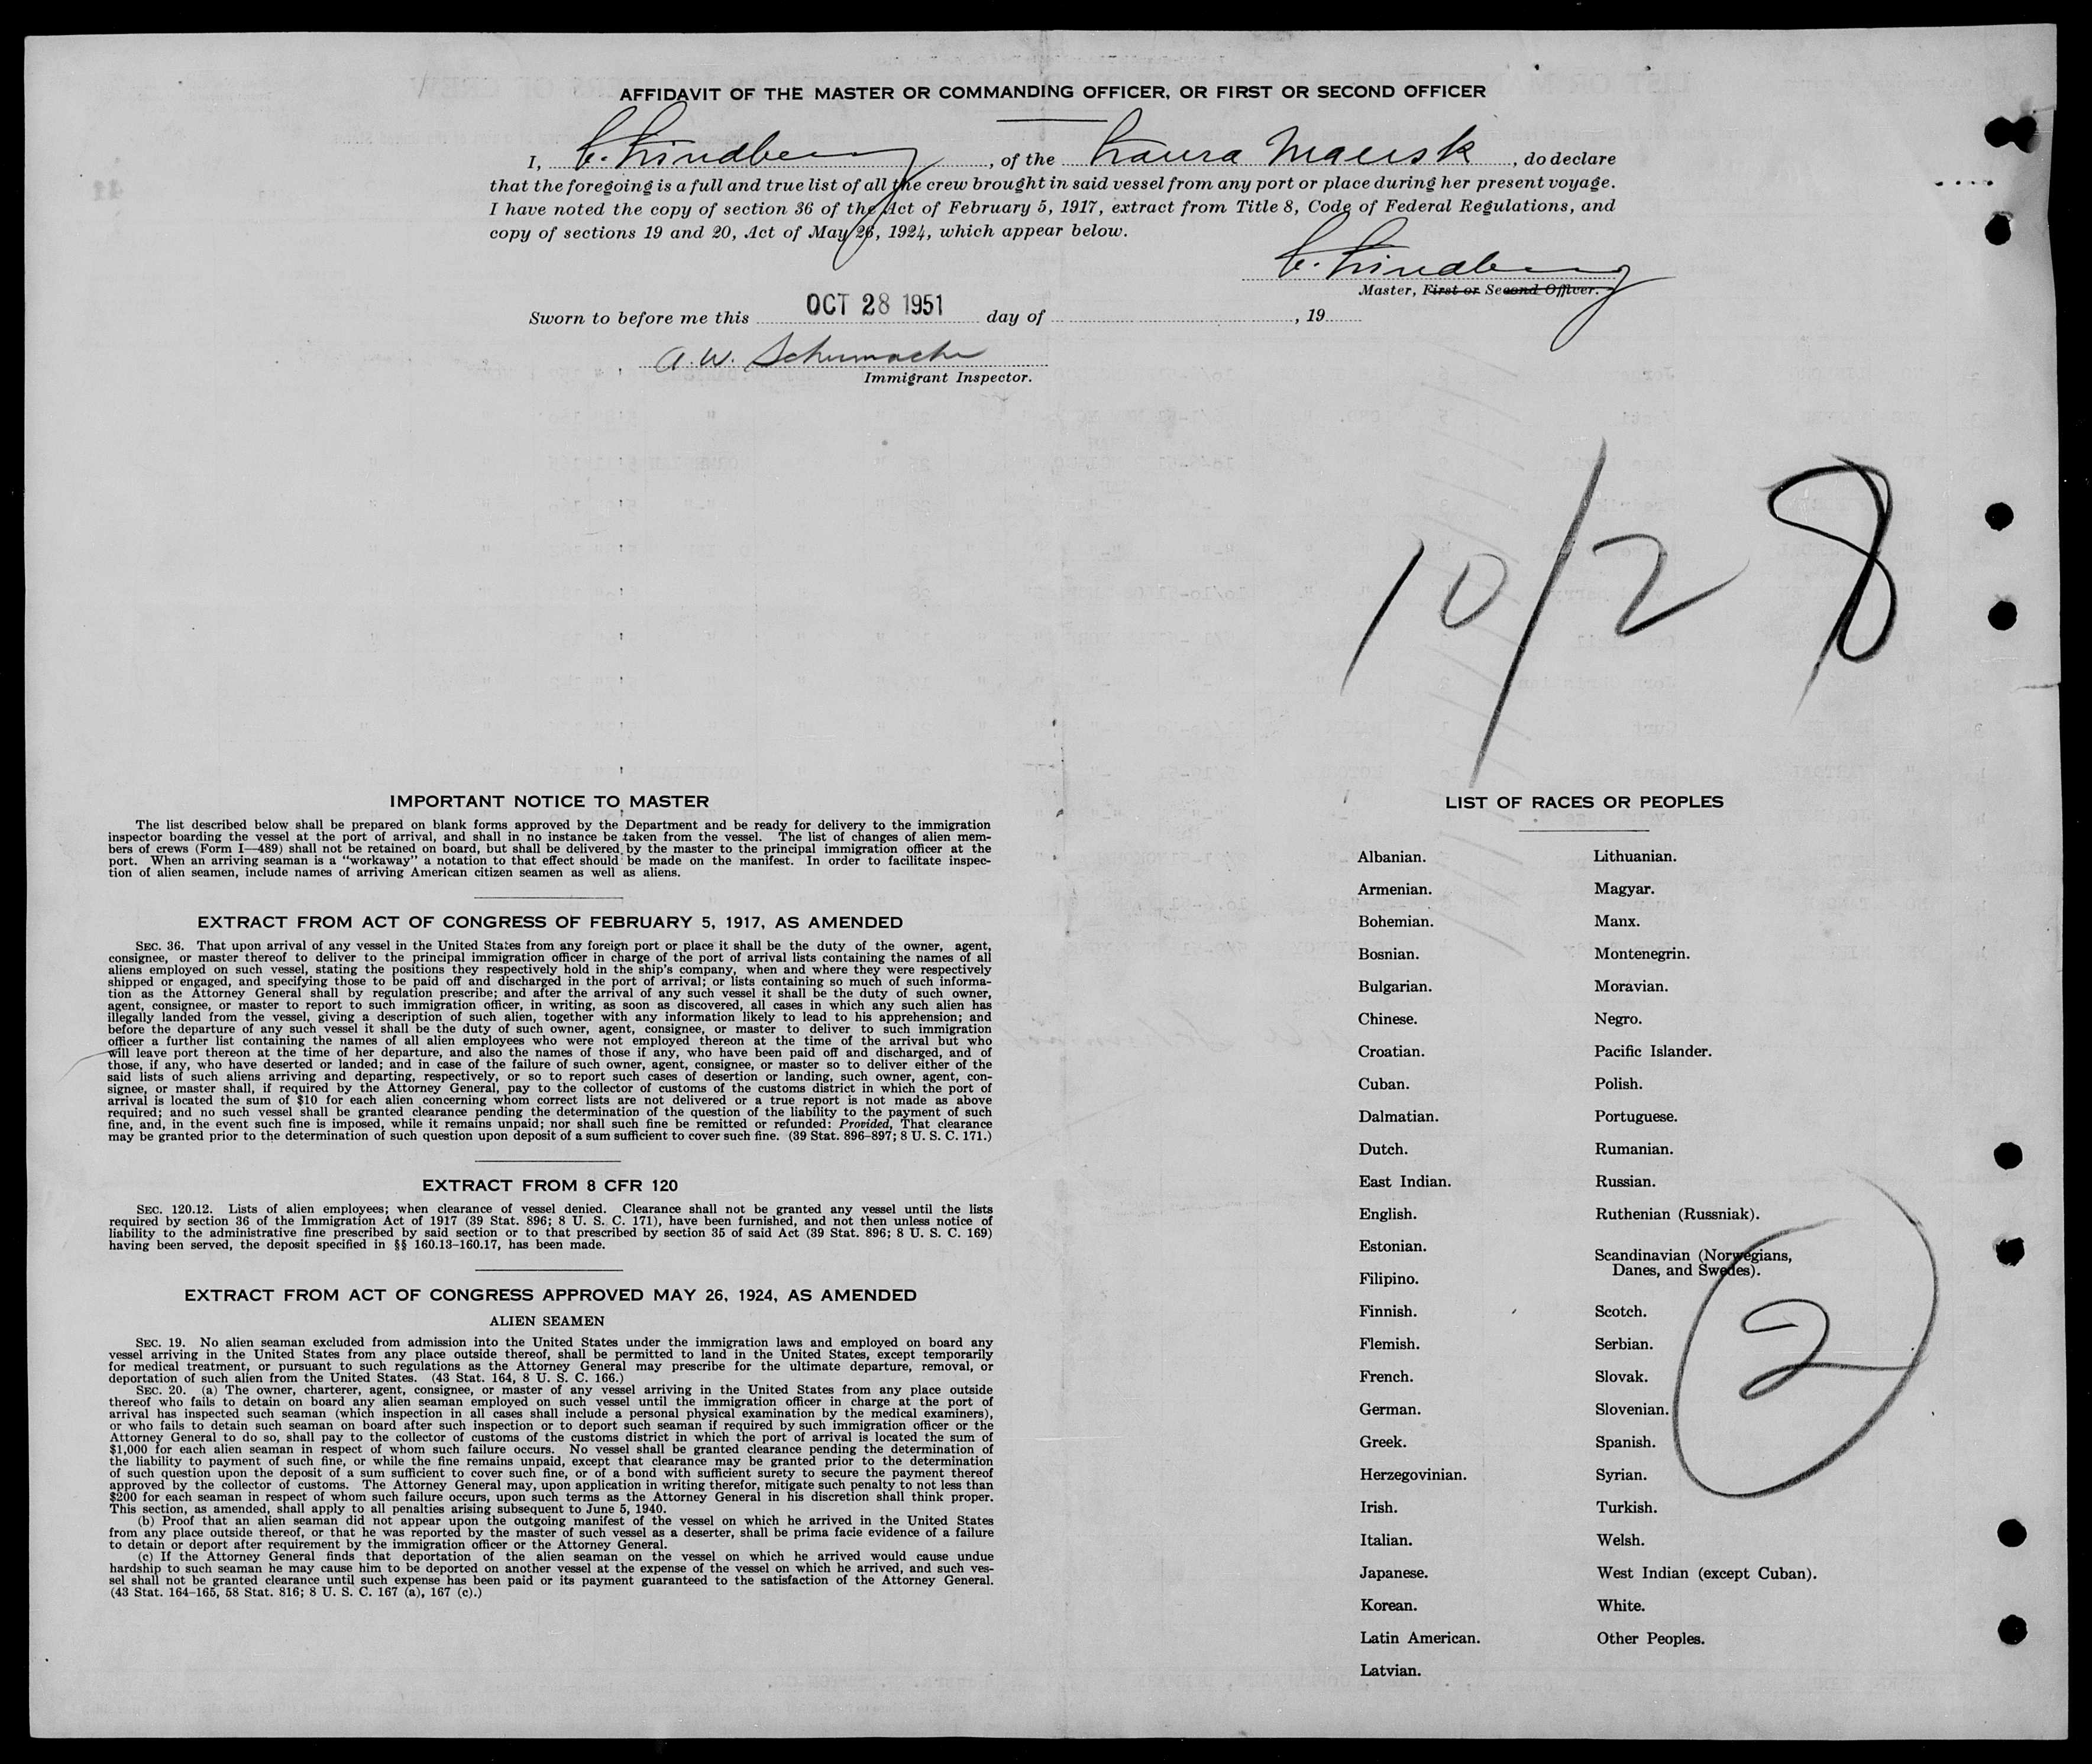 AFFIDAVIT OF THE MASTER OR COMMANDING OFFICER, OR FIRST OR SECOND OFFICER
I, C. Lindberg, of the Laura Maersk, do declare
that the foregoing is a full and true list of all the crew brought in said vessel from any port or place during her present voyage.
I have noted the copy of section 36 of the Act of February 5, 1917, extract from Title 8, Code of Federal Regulations, and
copy of sections 19 and 20, Act of May 26, 1924, which appear below.
C. Lindberg
Master, First or Second Officer.
Sworn to before me this OCT 28 1951 day of , 19
A. W. Schumacher
Immigrant Inspector.
10/28
IMPORTANT NOTICE TO MASTER
The list described below shall be prepared on blank forms approved by the Department and be ready for delivery to the immigration
inspector boarding the vessel at the port of arrival, and shall in no instance be taken from the vessel. The list of changes of alien mem-
bers of crews (Form I—489) shall not be retained on board, but shall be delivered by the master to the principal immigration officer at the
port. When an arriving seaman is a "workaway" a notation to that effect should be made on the manifest. In order to facilitate inspec-
tion of alien seamen, include names of arriving American citizen seamen as well as aliens.
EXTRACT FROM ACT OF CONGRESS OF FEBRUARY 5, 1917, AS AMENDED
SEC. 36. That upon arrival of any vessel in the United States from any foreign port or place it shall be the duty of the owner, agent,
consignee, or master thereof to deliver to the principal immigration officer in charge of the port of arrival lists containing the names of all
aliens employed on such vessel, stating the positions they respectively hold in the ship's company, when and where they were respectively
shipped or engaged, and specifying those to be paid off and discharged in the port of arrival; or lists containing so much of such informa-
tion as the Attorney General shall by regulation prescribe; and after the arrival of any such vessel it shall be the duty of such owner,
agent, consignee, or master to report to such immigration officer, in writing, as soon as discovered, all cases in which any such alien has
illegally landed from the vessel, giving a description of such alien, together with any information likely to lead to his apprehension; and
before the departure of any such vessel it shall be the duty of such owner, agent, consignee, or master to deliver to such immigration
officer a further list containing the names of all alien employees who were not employed thereon at the time of the arrival but who
will leave port thereon at the time of her departure, and also the names of those if any, who have been paid off and discharged, and of
those, if any, who have deserted or landed; and in case of the failure of such owner, agent, consignee, or master so to deliver either of the
said lists of such aliens arriving and departing, respectively, or so to report such cases of desertion or landing, such owner, agent, con-
signee, or master shall, if required by the Attorney General, pay to the collector of customs of the customs district in which the port of
arrival is located the sum of $10 for each alien concerning whom correct lists are not delivered or a true report is not made as above
required; and no such vessel shall be granted clearance pending the determination of the question of the liability to the payment of such
fine, and, in the event such fine is imposed, while it remains unpaid; nor shall such fine be remitted or refunded: Provided, That clearance
may be granted prior to the determination of such question upon deposit of a sum sufficient to cover such fine. (39 Stat. 896–897; 8 U. S. C. 171.)
EXTRACT FROM 8 CFR 120
SEC. 120.12. Lists of alien employees; when clearance of vessel denied. Clearance shall not be granted any vessel until the lists
required by section 36 of the Immigration Act of 1917 (39 Stat. 896; 8 U. S. C. 171), have been furnished, and not then unless notice of
liability to the administrative fine prescribed by said section or to that prescribed by section 35 of said Act (39 Stat. 896; 8 U. S. C. 169)
having been served, the deposit specified in §§ 160.13–160.17, has been made.
EXTRACT FROM ACT OF CONGRESS APPROVED MAY 26, 1924, AS AMENDED
ALIEN SEAMEN
SEC. 19. No alien seaman excluded from admission into the United States under the immigration laws and employed on board any
vessel arriving in the United States from any place outside thereof, shall be permitted to land in the United States, except temporarily
for medical treatment, or pursuant to such regulations as the Attorney General may prescribe for the ultimate departure, removal, or
deportation of such alien from the United States. (43 Stat. 164, 8 U. S. C. 166.)
SEC. 20. (a) The owner, charterer, agent, consignee, or master of any vessel arriving in the United States from any place outside
thereof who fails to detain on board any alien seaman employed on such vessel until the immigration officer in charge at the port of
arrival has inspected such seaman (which inspection in all cases shall include a personal physical examination by the medical examiners),
or who fails to detain such seaman on board after such inspection or to deport such seaman if required by such immigration officer or the
Attorney General to do so, shall pay to the collector of customs of the customs district in which the port of arrival is located the sum of
$1,000 for each alien seaman in respect of whom such failure occurs. No vessel shall be granted clearance pending the determination of
the liability to payment of such fine, or while the fine remains unpaid, except that clearance may be granted prior to the determination
of such question upon the deposit of a sum sufficient to cover such fine, or of a bond with sufficient surety to secure the payment thereof
approved by the collector of customs. The Attorney General may, upon application in writing therefor, mitigate such penalty to not less than
$200 for each seaman in respect of whom such failure occurs, upon such terms as the Attorney General in his discretion shall think proper.
This section, as amended, shall apply to all penalties arising subsequent to June 5, 1940.
(b) Proof that an alien seaman did not appear upon the outgoing manifest of the vessel on which he arrived in the United States
from any place outside thereof, or that he was reported by the master of such vessel as a deserter, shall be prima facie evidence of a failure
to detain or deport after requirement by the immigration officer or the Attorney General.
(c) If the Attorney General finds that deportation of the alien seaman on the vessel on which he arrived would cause undue
hardship to such seaman he may cause him to be deported on another vessel at the expense of the vessel on which he arrived, and such ves-
sel shall not be granted clearance until such expense has been paid or its payment guaranteed to the satisfaction of the Attorney General.
(43 Stat. 164–165, 58 Stat. 816; 8 U. S. C. 167 (a), 167 (c).)
LIST OF RACES OR PEOPLES
Albanian.
Armenian.
Bohemian.
Bosnian.
Bulgarian.
Chinese.
Croatian.
Cuban.
Dalmatian.
Dutch.
East Indian.
English.
Estonian.
Filipino.
Finnish.
Flemish.
French.
German.
Greek.
Herzegovinian.
Irish.
Italian.
Japanese.
Korean.
Latin American.
Latvian.
Lithuanian.
Magyar.
Manx.
Montenegrin.
Moravian.
Negro.
Pacific Islander.
Polish.
Portuguese.
Rumanian.
Russian.
Ruthenian (Russniak).
Scandinavian (Norwegians,
Danes, and Swedes).
Scotch.
Serbian.
Slovak.
Slovenian.
Spanish.
Syrian.
Turkish.
Welsh.
West Indian (except Cuban).
White.
Other Peoples.
2